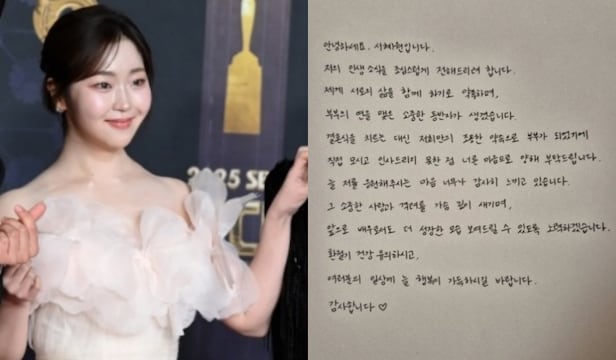 2025 SE
안녕하세요. 서혜원입니다.
저의 인생 소식을 조심스럽게 전해드리려 합니다.
제게 서로의 삶을 함께 하기로 약속하며,
부부의 연을 맺은 소중한 동반자가 생겼습니다.
결혼식을 치르는 대신 저희만의 조용한 약속으로 부부가 되었기에
직접 모시고 인사드리지 못한 점 너른 마음으로 양해 부탁드립니다.
늘 저를 응원해주시는 마음 너무나 감사히 느끼고 있습니다.
그 소중한 사랑과 격려를 가슴 깊이 새기며,
앞으로 배우로서도 더 성장한 모습 보여드릴 수 있도록 노력하겠습니다.
환절기 건강 유의하시고,
여러분의 일상에 늘 행복이 가득하시길 바랍니다.
감사합니다 ♡